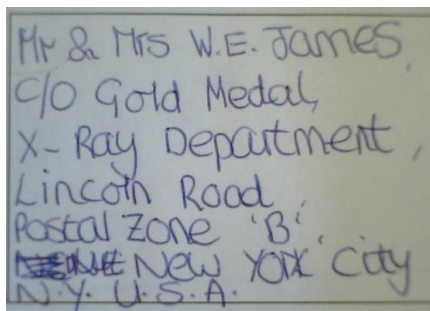 Mr & Mrs W.E. James,
C/O Gold Medal,
X-Ray Department,
Lincoln Road,
Postal Zone 'B',
New York City
N.Y. U.S.A.